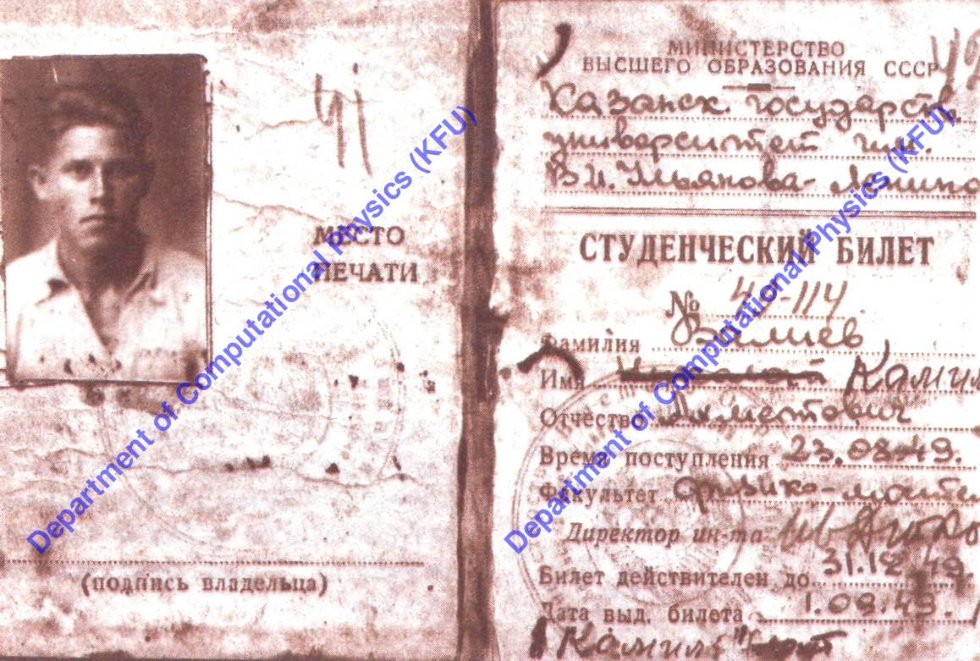 МЕСТО
ПЕЧАТИ
(подпись владельца)
МИНИСТЕРСТВО
ВЫСШЕГО ОБРАЗОВАНИЯ СССР
Казанск государств
университет им.
В.И. Ульянова-Ленина
СТУДЕНЧЕСКИЙ БИЛЕТ
№ 49-114
Фамилия Валиев
Имя Камил
Отчество Ахметович
Время поступления 23.08.49.
Факультет Физико-мате
Директор ин-та
Билет действителен до 31.12.49
Дата выд. билета 1.09.49.
"Камиль"
Department of Computational Physics (KFU)
Department of Computational Physics (KFU)